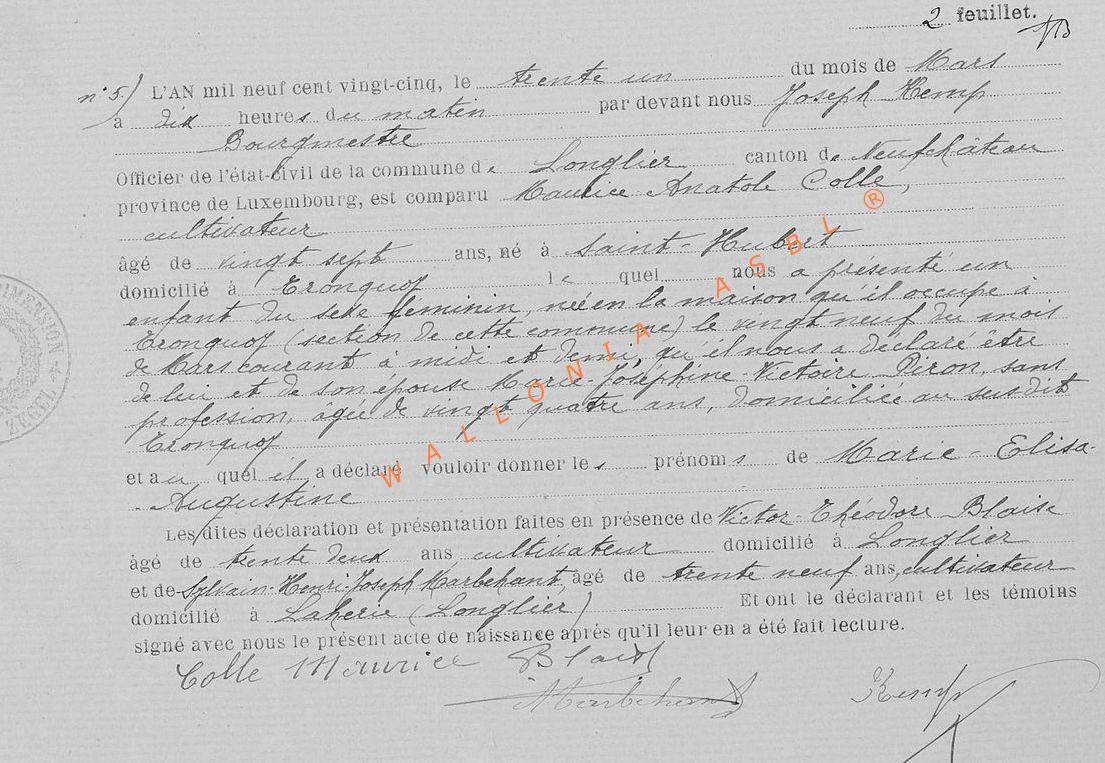 2 feuillet.
n° 5.) L'AN mil neuf cent vingt-cinq, le trente un du mois de Mars
à dix heures du matin par devant nous Joseph Kemp
Bourgmestre
Officier de l'état-civil de la commune de Longlier canton de Neufchâteau
province de Luxembourg, est comparu Maurice Anatole Colle,
cultivateur
âgé de vingt sept ans, né à Saint-Hubert
domicilié à Tronquoy le quel nous a présenté un
enfant du sexe féminin, née en la maison qu'il occupe à
Tronquoy (section de cette commune) le vingt neuf du mois
de Mars courant à midi et demi, qu'il nous a déclaré être
de lui et de son épouse Marie-Joséphine-Victoire Piron, sans
profession, âgée de vingt quatre ans, domiciliée au susdit
Tronquoy
et au quel il a déclaré vouloir donner les prénoms de Marie-Elisa-
Augustine
Les dites déclaration et présentation faites en présence de Victor-Théodore Blaise
âgé de trente deux ans cultivateur domicilié à Longlier
et de Sylvain-Henri-Joseph Marbehant, âgé de trente neuf ans, cultivateur
domicilié à Laherie (Longlier) Et ont le déclarant et les témoins
signé avec nous le présent acte de naissance après qu'il leur en a été fait lecture.
Colle Maurice Blaise
Marbehant Kemp
WALLONIA ASBL ®
DIMENSION